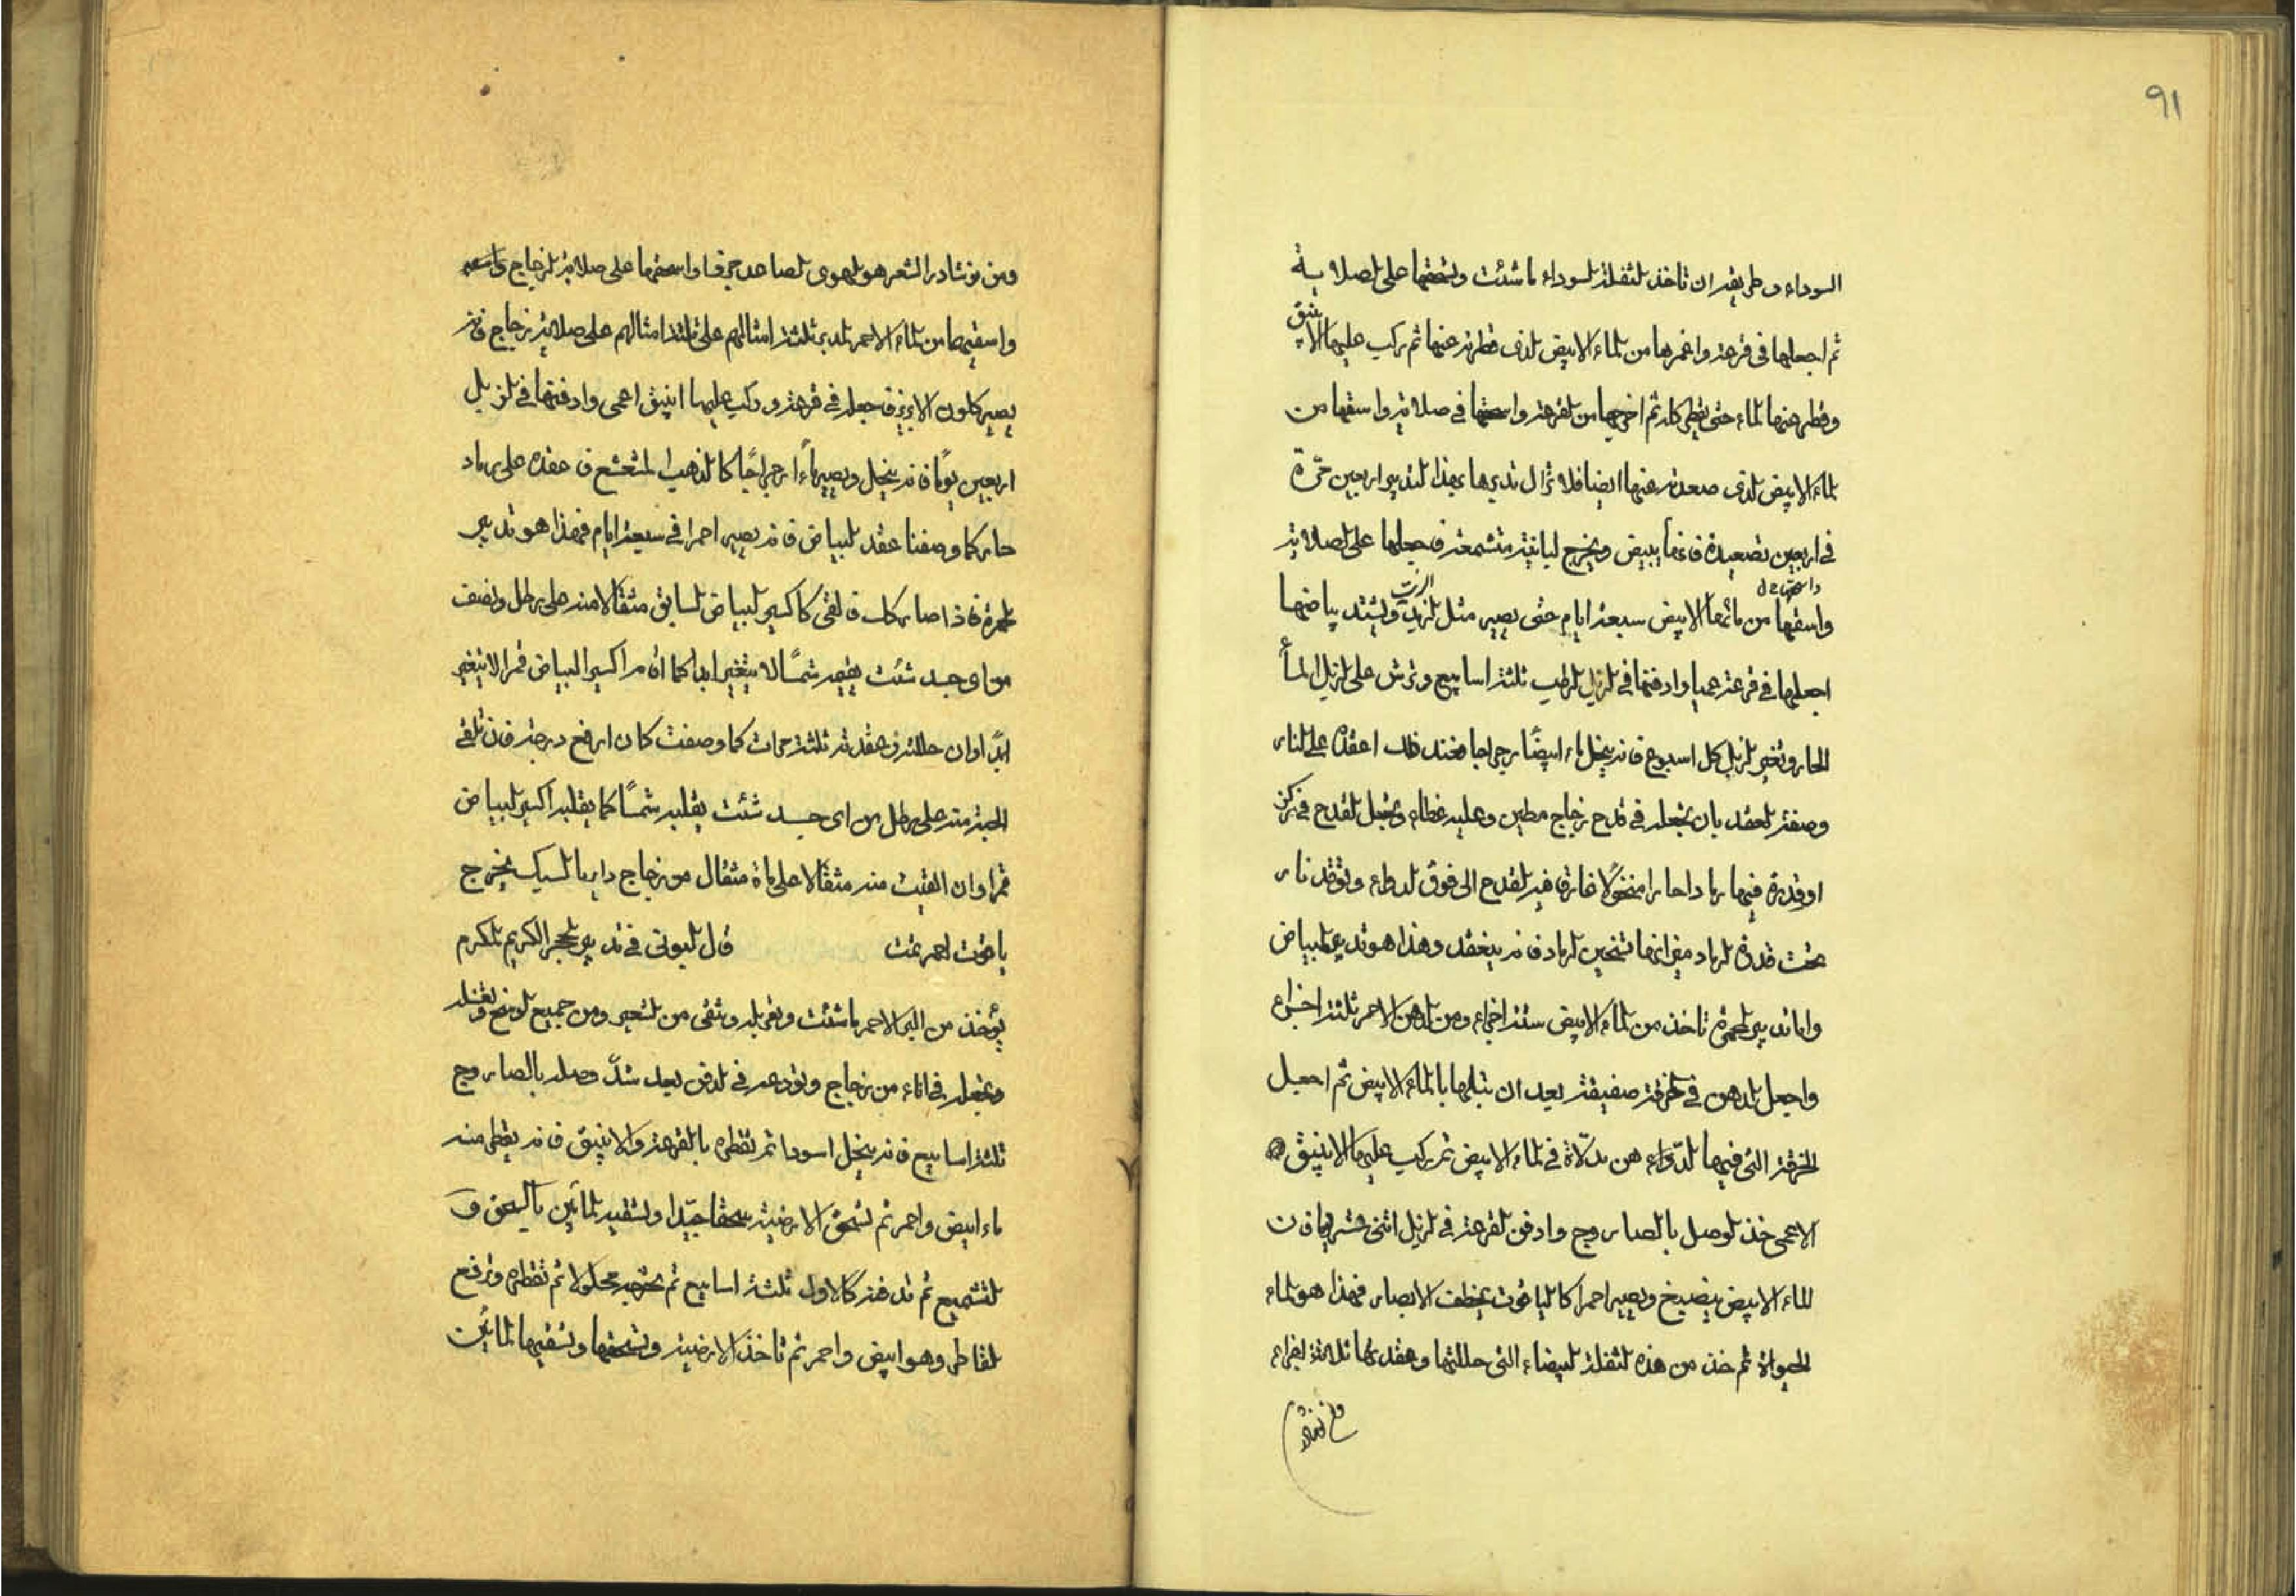 91
السوداء وطريقه ان تاخذ الثفلة السوداء ما شئت وتسحقها على الصلابة
ثم اجعلها في قرعة واغمرها من الماء الابيض الذى قطرته عنها ثم ركب عليها الانبيق
وقطر عنها الماء حتى يقطر كله ثم اخرجها من القرعة واسحقها في صلابة واسقها من
الماء الابيض الذى صعدته عنها ايضا فلا تزال تدبرها بهذا التدبير اربعين مرّة
في اربعين تصعيدة فانها تبيض ويخرج لبانية متشمعة فاجعلها على الصلابة
واسقها من مائها الابيض سبعة ايام حتى يصير مثل الزبد ويشتد بياضها
اجعلها في قرعة عميا وادفنها في الزبل الرطب ثلثة اسابيع وترش على الزبل الماء
الحار وتغير الزبل كل اسبوع فانه ينحل ماء ابيضًا رجراجا فخند ذلك اعقده على النار
وصفة العقد بان تجعله في قدح زجاج مطين وعليه غطاء وتجعل القدح في
او قدرة فيها رمادا حارا منخولًا غارق فيه القدح الى فوق الدواء وتوقد نار
تحت قدرة الرماد فانها تسخين الرماد فانه ينعقد وهذا هو تدبير البياض
واما تدبير الحمرة تاخذ من الماء الابيض ستة اجزاء ومن الدهن الاحمر ثلثة اجزاء
واجعل الدهن في خرقة صفيقة بعد ان تبلها بالماء الابيض ثم اجعل
الخرقة التى فيها الدواء هن مدلّاة في الماء الابيض ثم ركب عليها الانبيق
الاعمى خذ الوصل بالصاروج وادفن القرعة في الزبل اثنى عشر يوما فان
الماء الابيض ينصبغ ويصير احمرا كالياقوت يخطف الابصار فهذا هو الماء
الحيوان ثم خذ من هذه الثفلة البيضاء التى حللتها وعقدتها ثلاثة اجزاء
ومن نوشادر الشعر هو الهوى الصاعد جزءا واسحقها على صلابة الزجاج
واسقها من الماء الاحمر الذى ثلثة امثالهم على ثلثة امثالهم على صلابة زجاج فانه
يصير كلون الابريز فاجعله في قرعة وركب عليها انبيق اعمى وادفنها في الزبل
اربعين يومًا فانه ينحل ويصير ماءً رجراجًا كالذهب المشعشع فاعقده على رماد
حار كما وصفنا عقد البياض فانه يصير احمرا في سبعة ايام فهذا هو تدبير
الحمرة فاذا صار كذلك فالقى كاكسير البياض السابق مثقالا منه على رطل ونصف
من اى جسد شئت يقيمه شمسًا لا يتغير ابدا كما اقام اكسير البياض قمرا لا يتغير
ابدًا وان حللته وعقدته ثلثة مرات كما وصفت كان ارفع درجة فان تلقى
الحبة منه على رطل من اى جسد شئت يقلبه شمسًا كما يقلبه اكسير البياض
قمرا وان القيت منه مثقالا على ماة مثقال من زجاج دايبا لسبك يخرج
ياقوت احمر تمت قال البونى في تدبير الحجر الكريم المكرم
يؤخذ من البى الاحمر ما شئت وتغربله وتنقى من الشعير ومن جميع الوسخ وتغسله
وتجعله في اناء من زجاج وتودعه في الدفن بعد شدّ وصله بالصاروج
ثلثة اسابيع فانه ينحل اسودا ثم تقطره بالقرعة والانبيق فانه يقطر منه
ماء ابيض واحمر ثم تسحق الارضية سحقا جيّدا وتسقيه المائين بالسحق و
التشميع ثم تدفنه كالاول ثلثة اسابيع ثم تخرجه محلولا ثم تقطره وترفع
القاطر وهو ابيض واحمر ثم تاخذ الارضية وتسحقها وتسقيها المائين